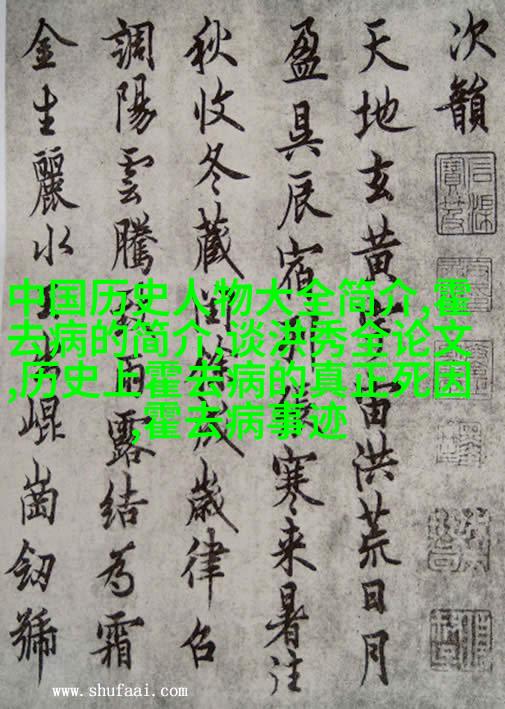 次韻
天地玄黄宙洪荒日月
盈昃辰宿寒来暑往
秋收冬藏閏成歲律召
調陽雲騰雨露結為霜
金生麗水崐崗劒號
中国历史人物大全简介,霍
去病的简介,谈洪秀全论文
,历史上霍去病的真正死因
,霍去病事迹
www.shufaai.com